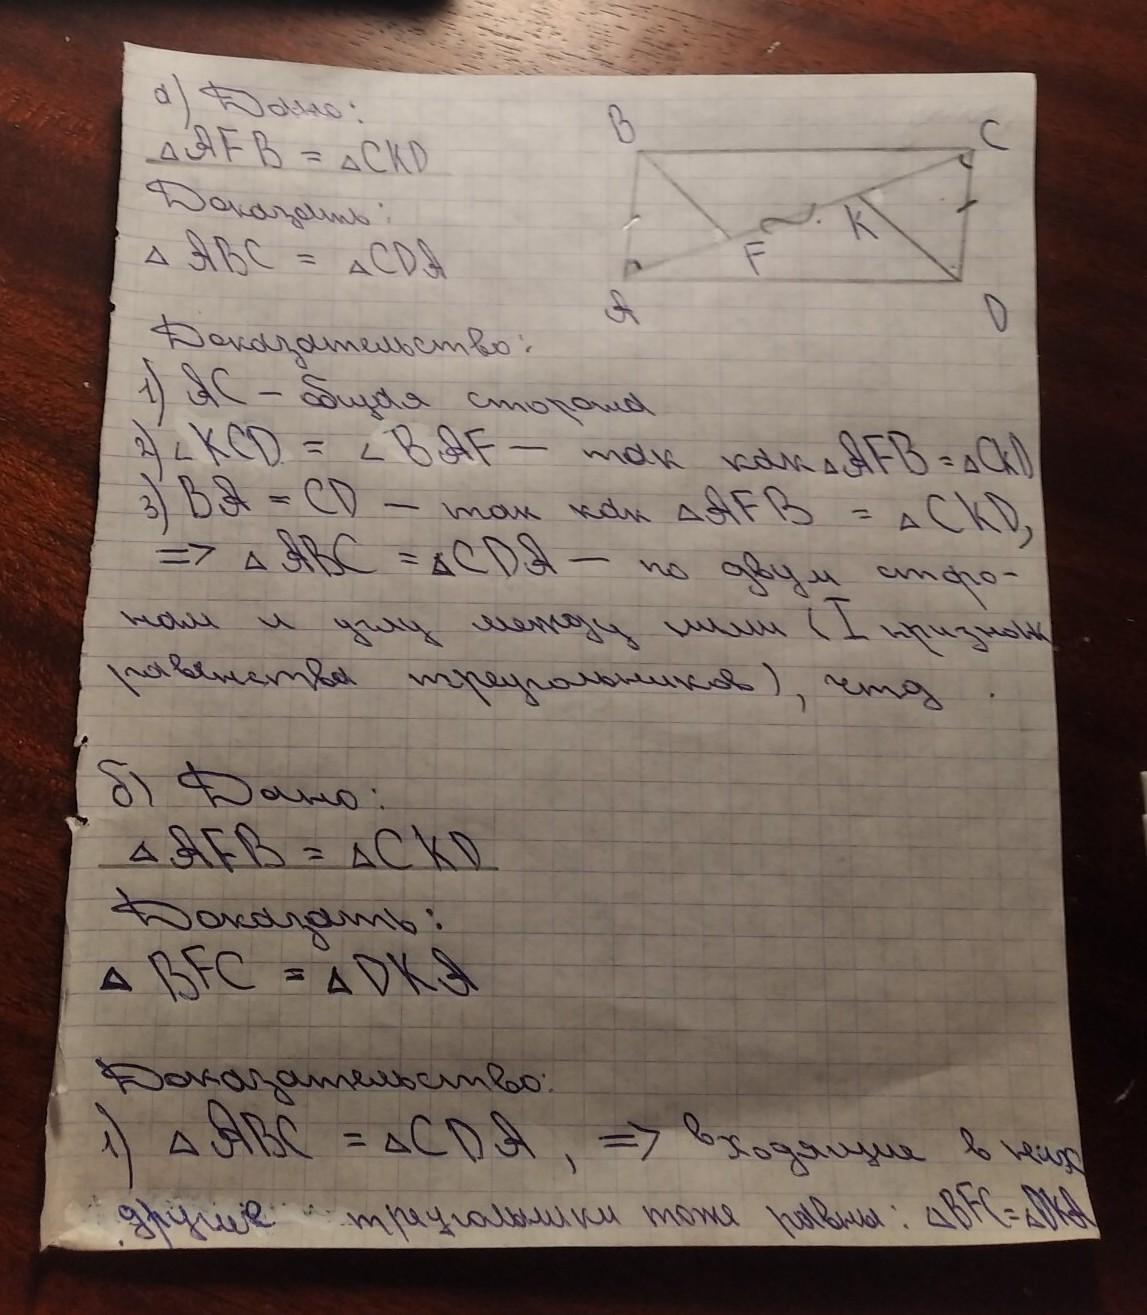 а) Дано:
△AFB = △CKD
Доказать:
△ABC = △CDA
B
C
F
K
A
D
Доказательство:
1) AC – общая сторона
2) ∠KCD = ∠BAF – так как △AFB = △CKD
3) BA = CD – так как △AFB = △CKD,
=> △ABC = △CDA – по двум сторо-
нам и углу между ними (I признак
равенства треугольников), чтд.
б) Дано:
△AFB = △CKD
Доказать:
△BFC = △DKA
Доказательство:
1) △ABC = △CDA, => входящие в них
другие треугольники тоже равны: △BFC=△DKA